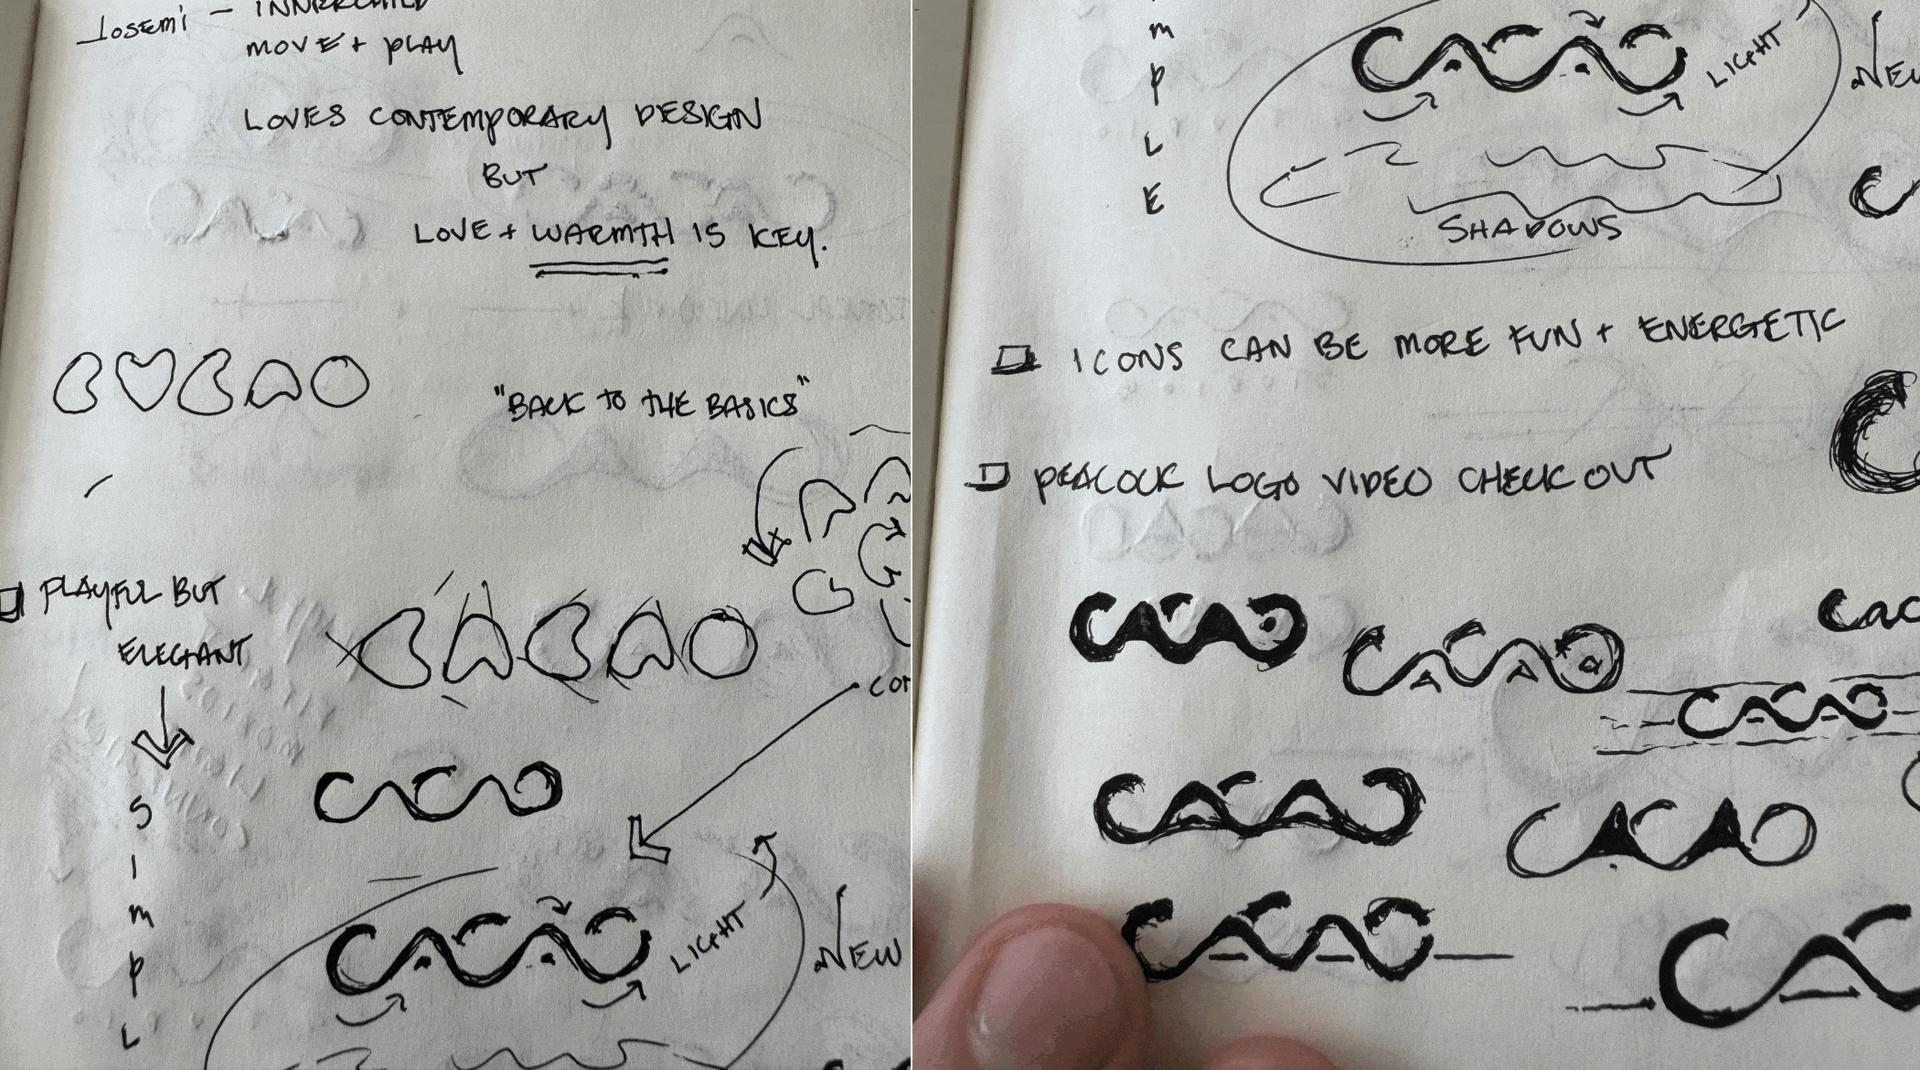 Josemi - INNRRCHILD
MOVE + PLAY
LOVES CONTEMPORARY DESIGN
BUT
LOVE + WARMTH IS KEY.
"BACK TO THE BASICS"
PLAYFUL BUT
ELEGANT
CACAO
S
I
M
P
L
CACAO
LIGHT
NEW
M
P
L
E
CACAO
LIGHT
NEW
SHADOWS
ICONS CAN BE MORE FUN + ENERGETIC
PEACOCK LOGO VIDEO CHECK OUT
CACAO
CACAO
CACAO
CACAO
CACAO
CACAO